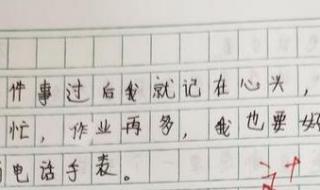 件事过后我就记在心头，
忙，作业再多，我也要好
电话手表。